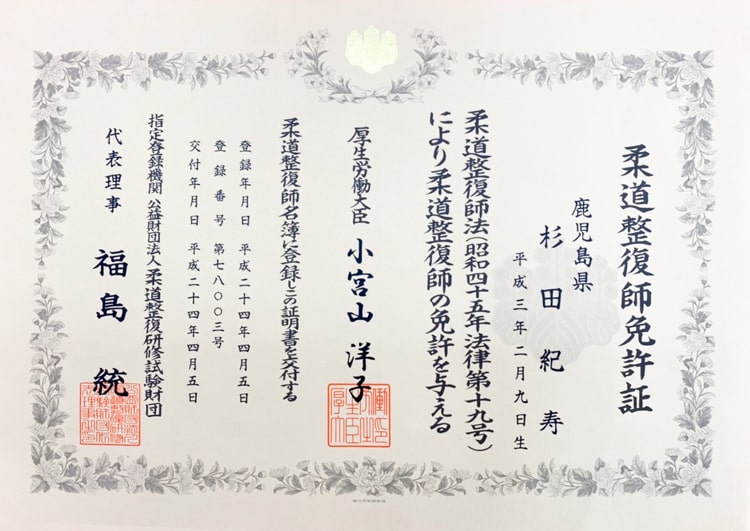 柔道整復師免許証
鹿児島県
杉田紀寿
平成三年二月九日生
柔道整復師法(昭和四十五年法律第十九号)
により柔道整復師の免許を与える
厚生労働大臣 小宮山洋子
柔道整復師名簿に登録しこの証明書を交付する
登録年月日 平成二十四年四月五日
登録番号 第七八〇〇三号
交付年月日 平成二十四年四月五日
指定登録機関 公益財団法人柔道整復研修試験財団
代表理事 福島統